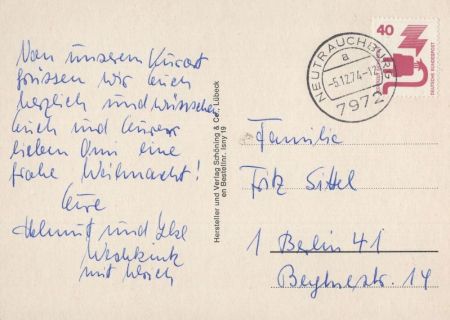 Von unserem Kurort
grüssen wir Euch
herzlich und wünschen
Euch und Eurer
lieben Omi eine
frohe Weihnacht!
Eure
Helmut und Ilse
mit
Hersteller und Verlag Schöning & Co., Lübeck
Bestellnr. Isny 19
NEUTRAUCHBURG
a
-5.12.74-12
7972
40
DEUTSCHE BUNDESPOST
Familie
Fritz Sittel
1 Berlin 41
14